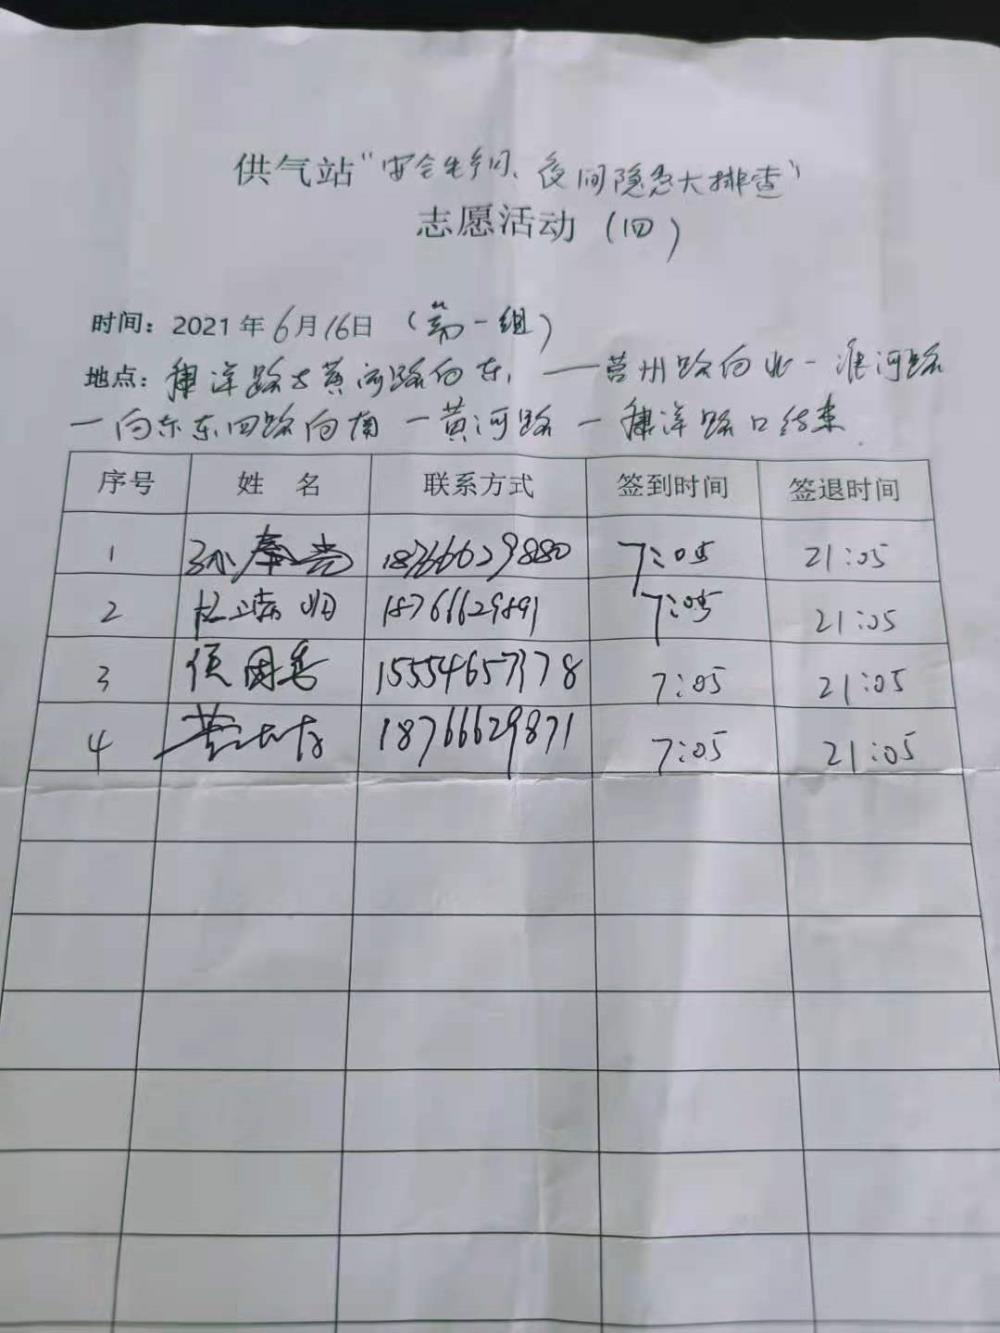 供气站"安全生产月、夜间隐患大排查"
志愿活动（四）
时间：2021年6月16日（第一组）
地点： 路与黄河路向东，——莒州路向北－淮河路
－向东东四路向南－黄河路－ 路口结束
序号 姓 名 联系方式 签到时间 签退时间
1 孙奉 18766629880 7:05 21:05
2 杜 18766629891 7:05 21:05
3 侯国 15554657178 7:05 21:05
4 18766629871 7:05 21:05